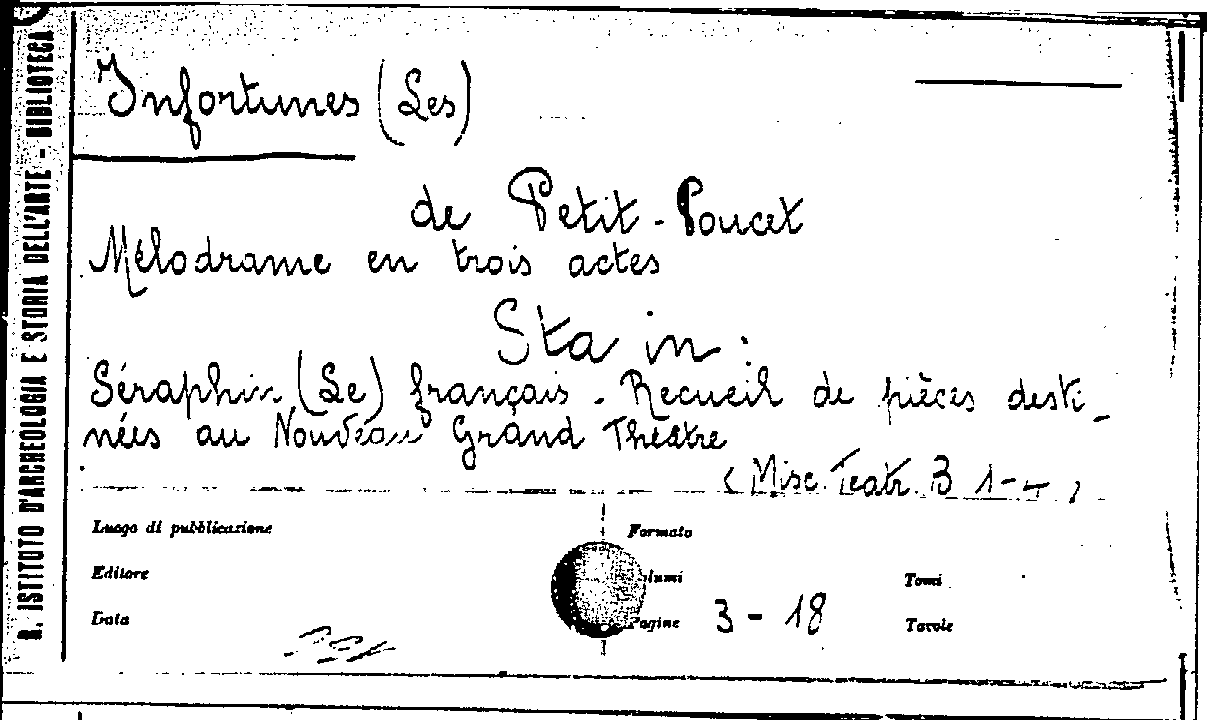 R. ISTITUTO D'ARCHEOLOGIA E STORIA DELL'ARTE - BIBLIOTECA
Infortunes (Les)
de Petit-Poucet
Mélodrame en trois actes
Sta in:
Séraphin (Le) français. Recueil de pièces desti-
nées au Nouveau Grand Théâtre
(Misc. Teatr. B 1-4)
Luogo di pubblicazione
Formato
Editore
Tomi
Data
Pagine 3-18
Tavole